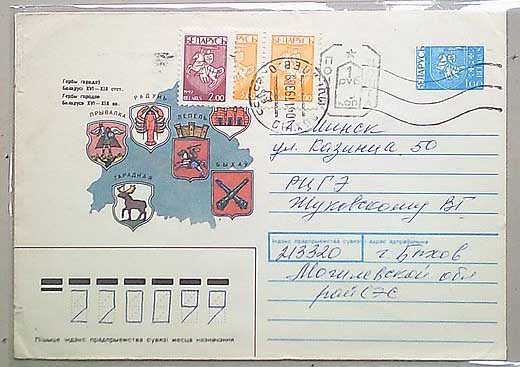 Гербы гарадоў
Беларусі XVI—XIX стст.
Гербы городов
Беларуси XVI—XIX вв.
БЕЛАРУСЬ
1992
BELARUS 2.00
БЕЛАРУСЬ
БЕЛАРУСЬ
РАДУНЬ
ПРЫВАЛКА
ЛЕПЕЛЬ
БЫХАЎ
ГАРАДНАЯ
г. Минск
ул. Казинца 50
РЦГЭ
Жуковскому ВГ
Індэкс прадпрыемства сувязі і адрас адпраўшчыка
213320 г Быхов
Могилевской обл
райСЭС
220099
Пішыце індэкс прадпрыемства сувязі месца назначэння